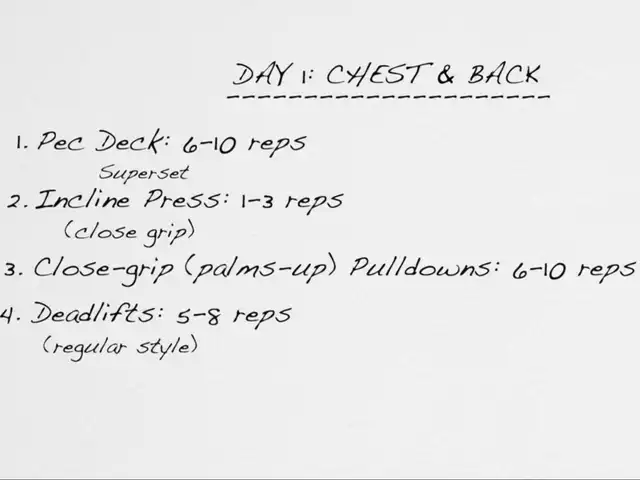 DAY 1: CHEST & BACK
1. Pec Deck: 6-10 reps
Superset
2. Incline Press: 1-3 reps
(close grip)
3. Close-grip (palms-up) Pulldowns: 6-10 reps
4. Deadlifts: 5-8 reps
(regular style)